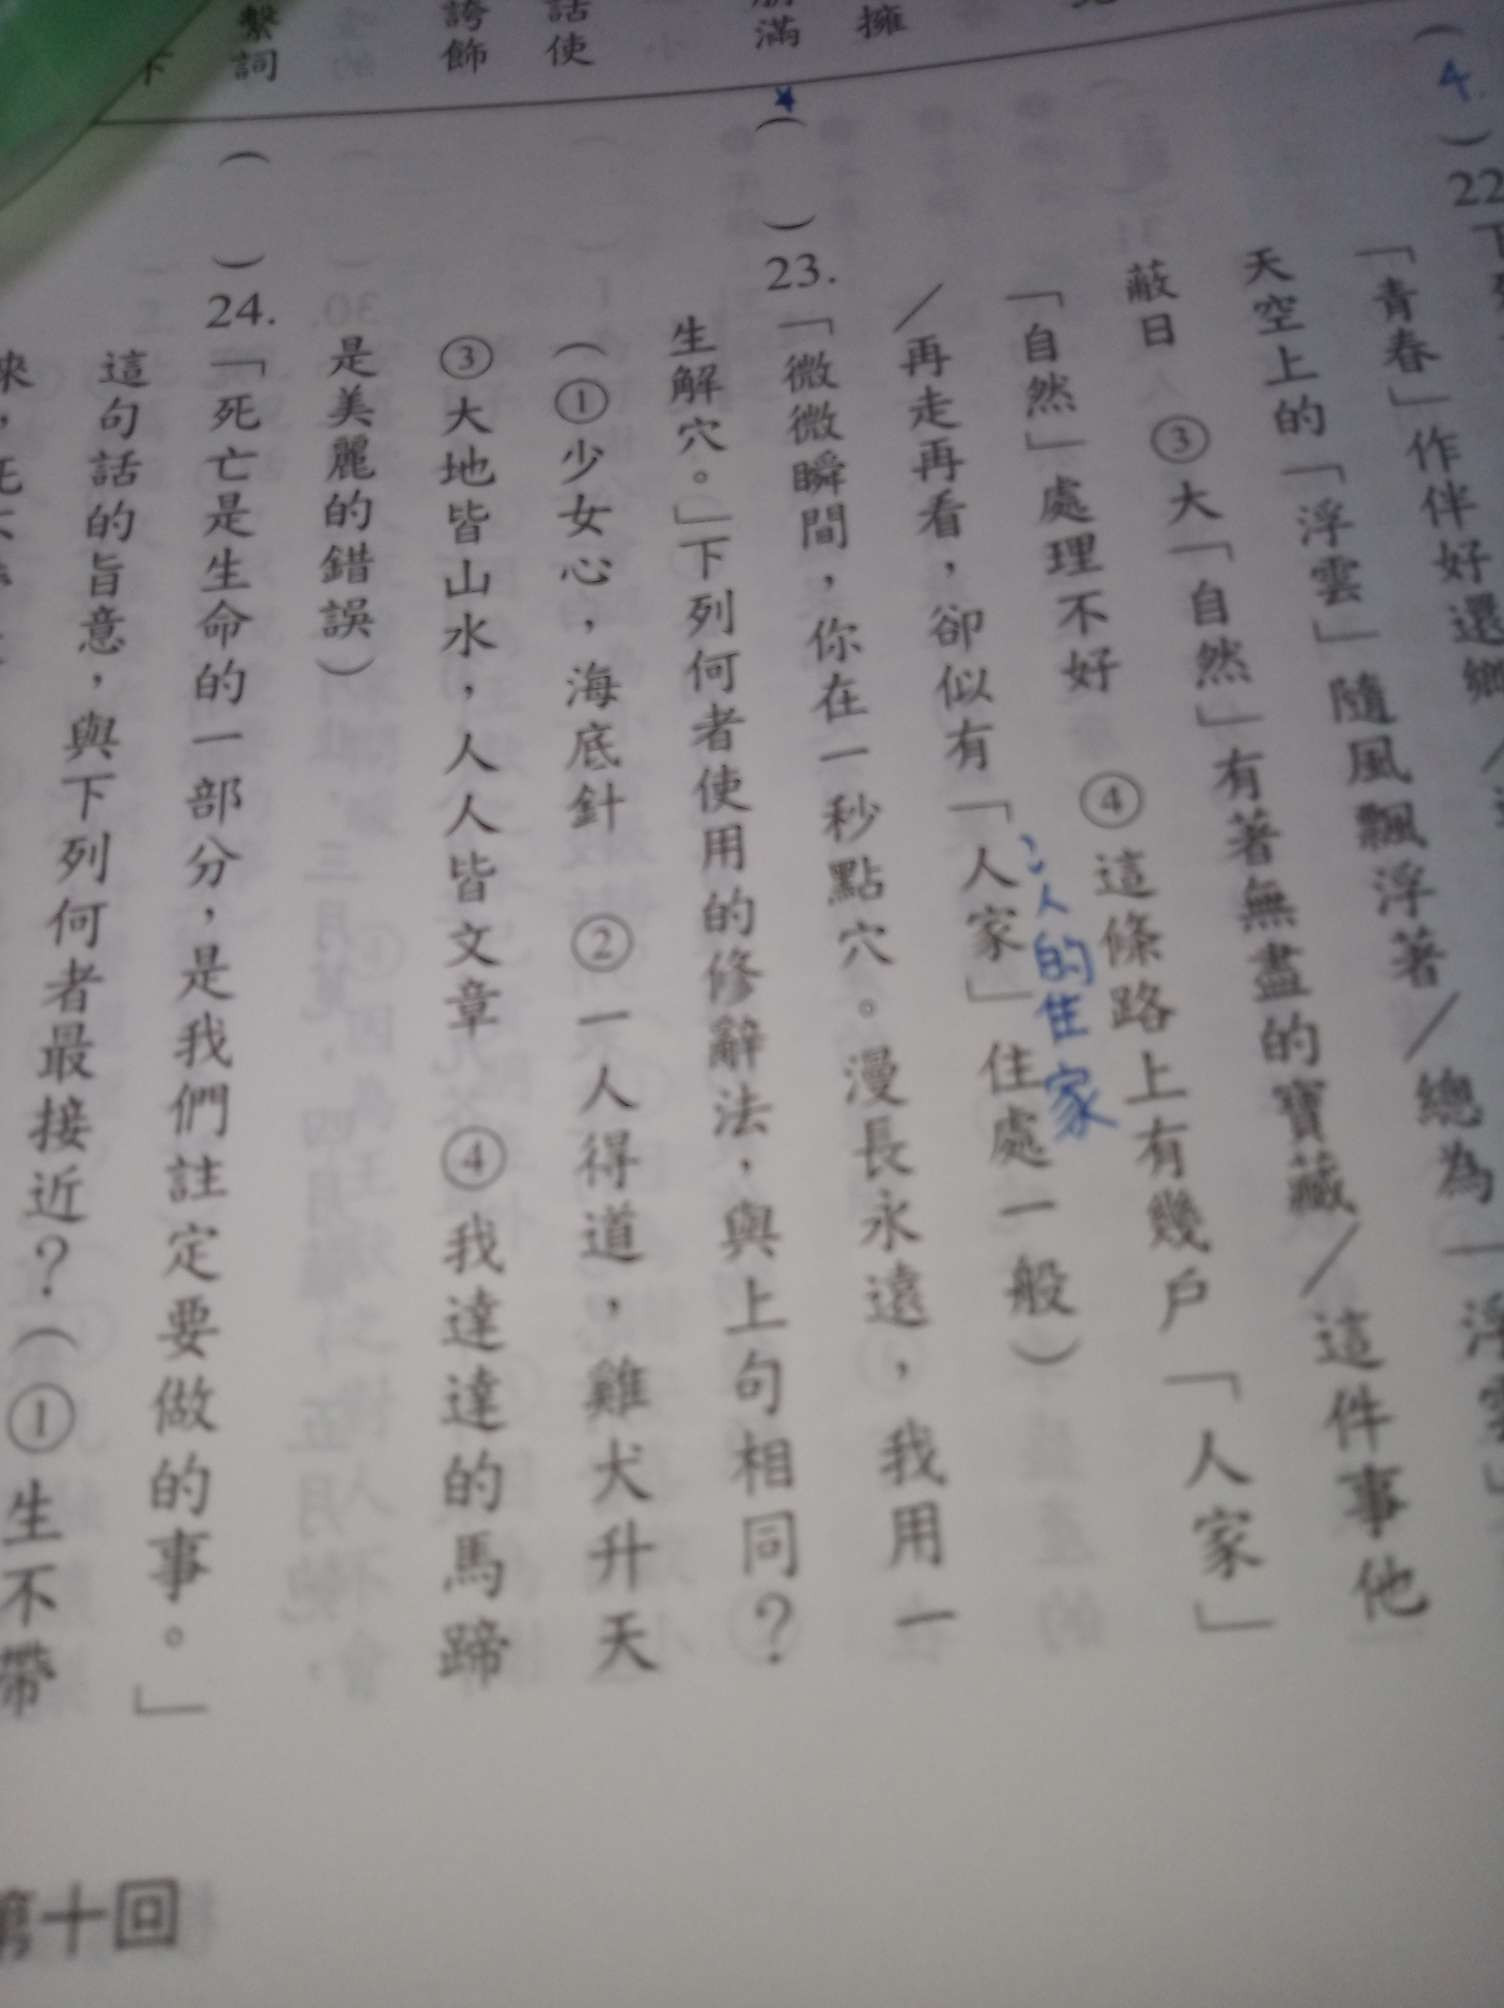 擁
滿
話使
誇飾
繫詞
下
4.
（　）22
「青春」作伴好還鄉／
天空上的「浮雲」隨風飄浮著／總為「浮雲」
蔽日　③大「自然」有著無盡的寶藏／這件事他
「自然」處理不好　④這條路上有幾戶「人家」
／再走再看，卻似有「人家」住處一般）
人的住家
4
（　）23.「微微瞬間，你在一秒點穴。漫長永遠，我用一
生解穴。」下列何者使用的修辭法，與上句相同？
（①少女心，海底針　②一人得道，雞犬升天
③大地皆山水，人人皆文章　④我達達的馬蹄
是美麗的錯誤）
（　）24.「死亡是生命的一部分，是我們註定要做的事。」
這句話的旨意，與下列何者最接近？（①生不帶
來，死不
第十回